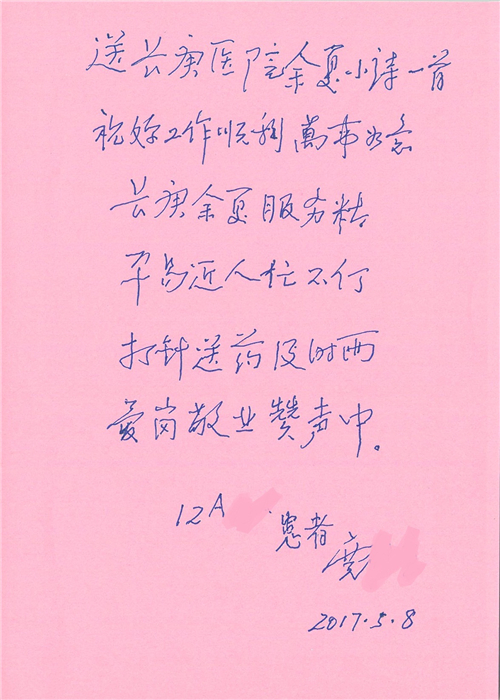 送长庚医院余夏小诗一首
祝好工作顺利萬事如意
长庚余夏服务精
平易近人忙不行
打针送药及时西
爱岗敬业赞声中。
12A
患者
2017.5.8